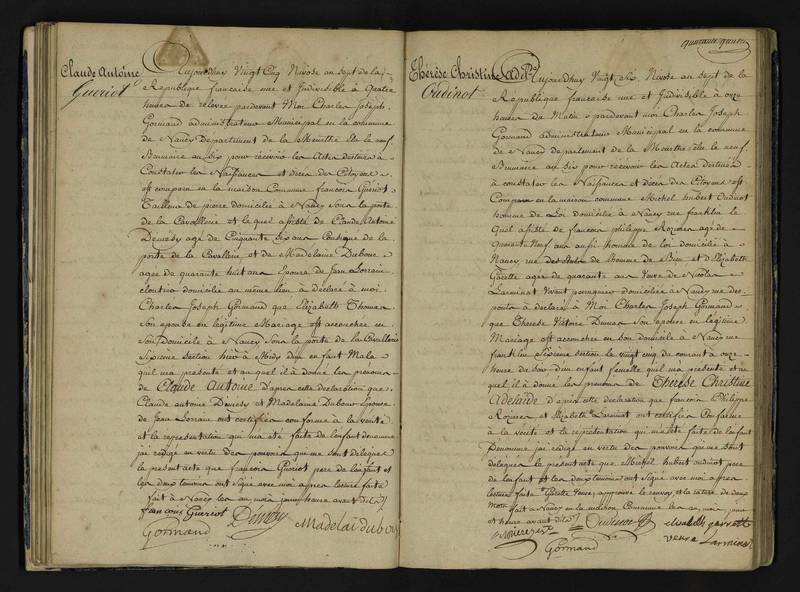 Claude Antoine
Gueriot
Aujourd'huy Vingt Cinq Nivose an sept de la
République francaise une et Indivisible à Quatre
heures de relevée pardevant Moi Charles Joseph
Gormand administrateur Municipal en la commune
de Nancy Departement de la Meurthe élu le neuf
Brumaire an six pour recevoir les Actes destinés à
Constater les Naissances et décès des Citoyens
est comparu en la maison Commune francois Guériot
Tailleur de pierre domicilié à Nancy sous la porte
de la Cavallerie et le quel assisté de Claude Antoine
Demésy agé de Cinquante six ans de la
porte de la Cavalerie et de Madelaine Dubour
agée de quarante huit ans épouse de Jean Lorrain
cloutier domicilié au même lieu à déclaré à moi
Charles Joseph Gormand que Elizabeth Thomas
Son epouse en légitime Mariage est accouchée en
son Domicile à Nancy sous la porte de la Cavallerie
Sixieme Section hier à Midy d'un enfant Male
qu'il ma présenté et au quel il à donné les prénoms
de Claude Antoine d'apres cette déclaration que
Claude antoine Demésy et Madelaine Dubour Epouse
de Jean Lorrain ont certifiée conforme à la verité
et la representation qui ma été faite de l'enfant denommé
jai rédigé en vertu des pouvoirs qui me sont délégués
le présent acte que francois Gueriot pere de l'enfant et
les deux temoins ont signé avec moi apres lecture faite
fait à Nancy les an mois jour heure avant dits
francois Gueriot Demésy Madelai dubour
Gormand
Thérèse Christine Adelᵈᵉ
Oudinot
Aujourdhuy Vingt Six Nivose an sept de la
République francaise une et Indivisible à onze
heures du Matin pardevant moi Charles Joseph
Gormand administrateur Municipal en la commune
de Nancy departement de la Meurthe élu le neuf
Brumaire an six pour recevoir les Actes destinés
à constater les Naissances et décès des Citoyens est
Comparu en la maison commune Michel hubert Oudinot
homme de Loi domicilié à Nancy rue franklin le
Quel assisté de francois philippe agé de
Quarante Neuf ans aussi homme de loi domicilié à
Nancy rue et d'Elizabeth
Garette agée de quarante ans Veuve de Nicolas
Larminat Vivant domiciliée à Nancy rue des
ponts à déclaré à Moi Charles Joseph Gormand
que Therese Victoire Son epouse en légitime
Mariage est accouchée en son domicile à Nancy rue
franklin Sixieme Section le vingt cinq du courant à onze
heures du soir d'un enfant femelle qu'il ma présenté et au
quel il à donné les prenoms de Thérèse Christine
Adelaide d'apres cette déclaration que francois Philippe
et Elizabeth Larminat ont certifiée Conforme
à la verité et la représentation qui m'a été faite de l'enfant
Denommé jai rédigé en vertu des pouvoirs qui me sont
délégués le présent acte que Michel hubert oudinot pere
de l'enfant et les deux temoins ont signé avec moi apres
lecture faite Garette Veuve, approuvé le renvoy et la rature de deux
Mots fait à Nancy en la maison Commune les an mois jour
et heure avant dits
Oudinot Elisabeth garette
veuve Larminat
Gormand